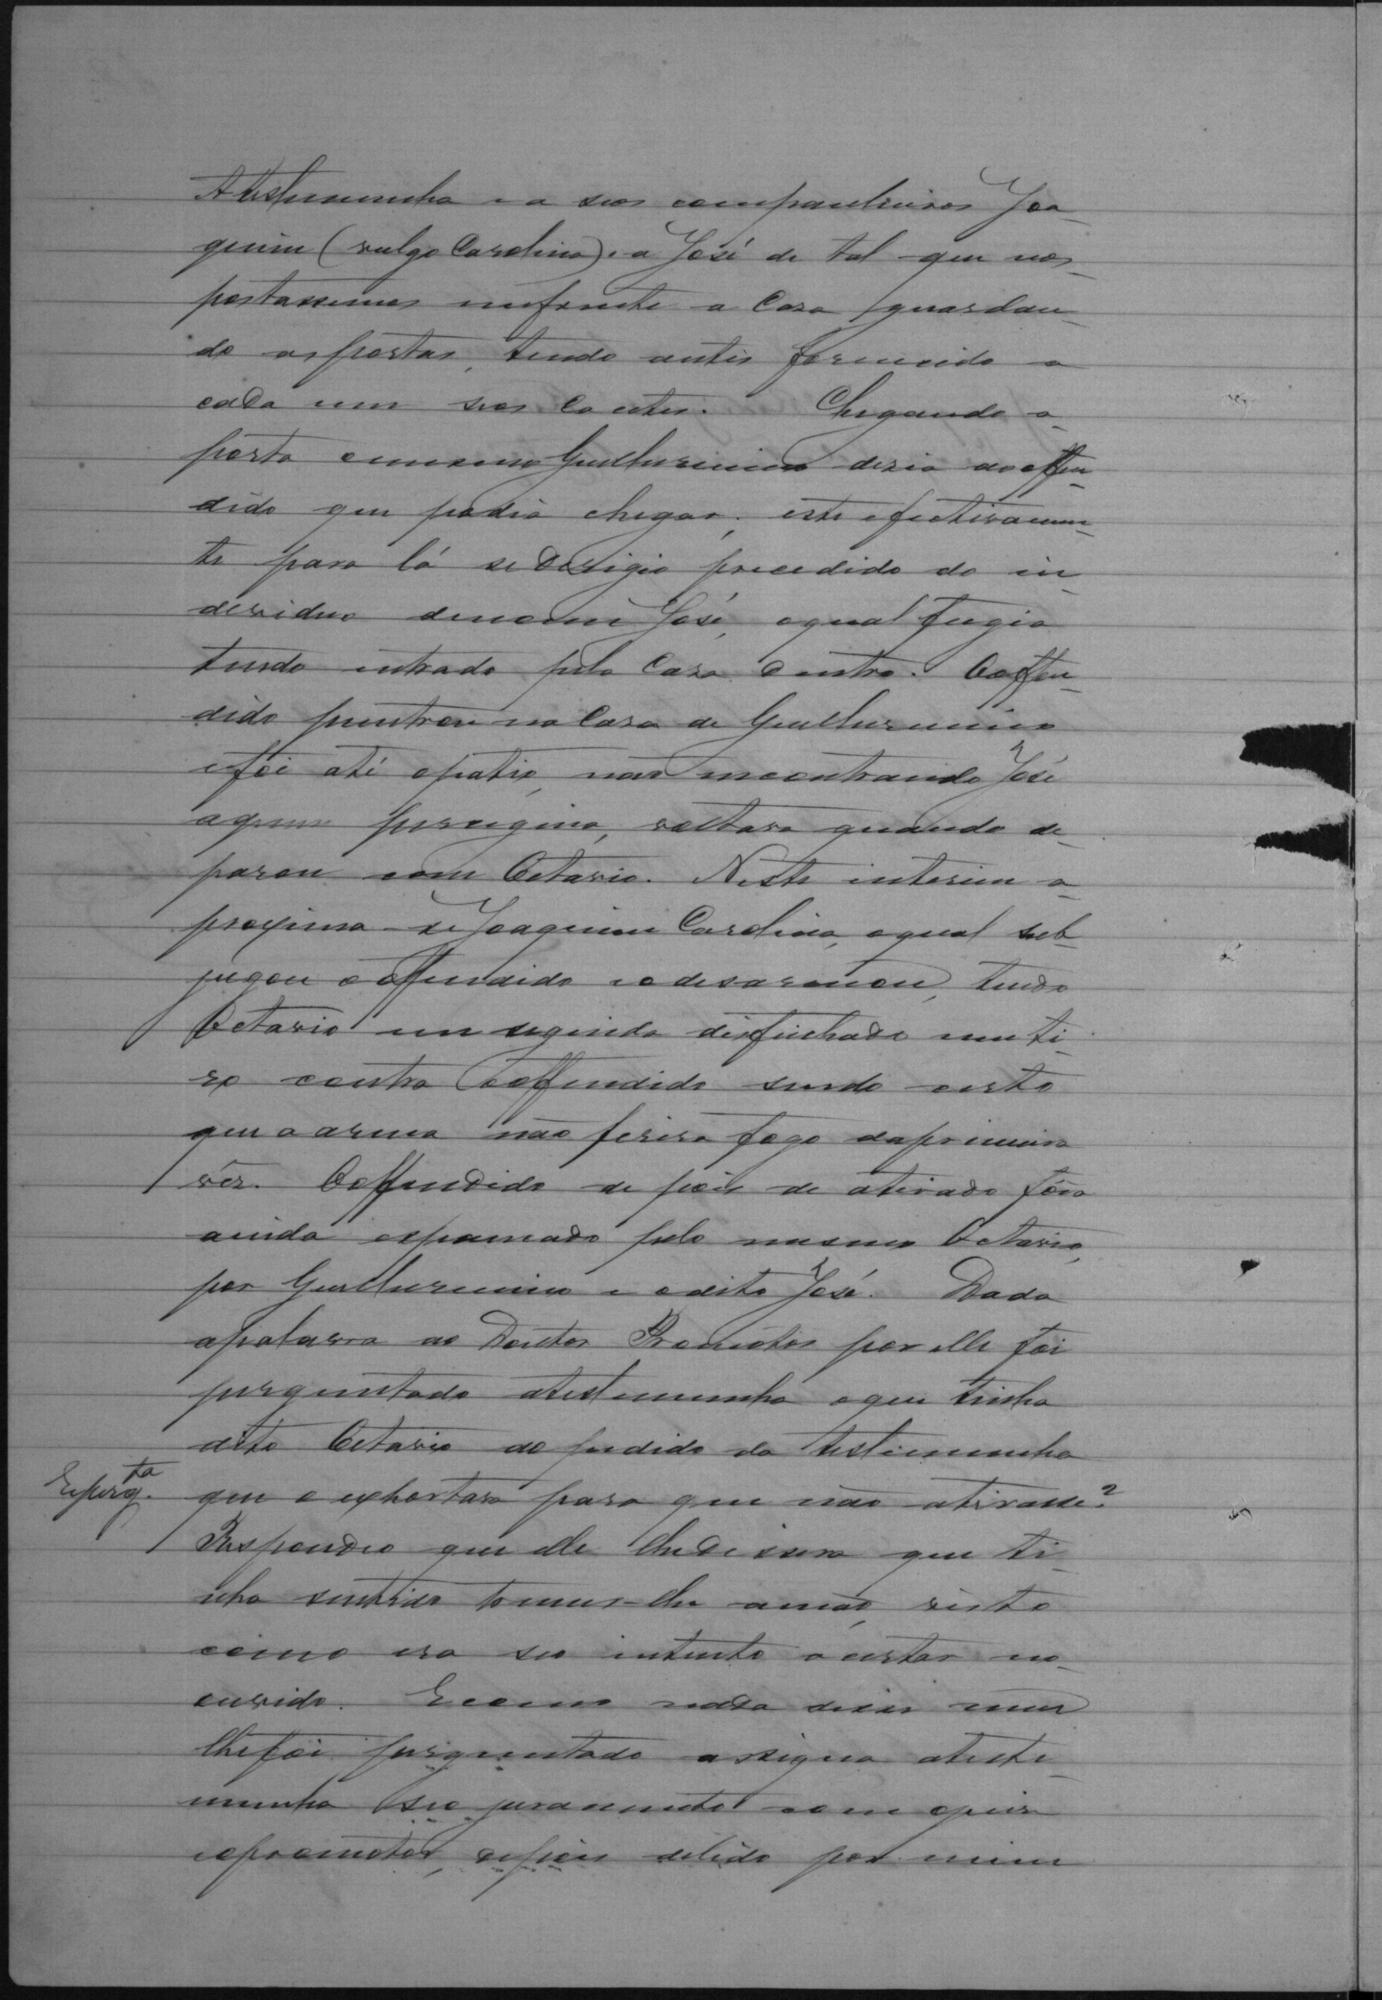 A testemunha e a seos companheiros Joa-
quim (vulgo Carolina) e a José de tal que nos
postassemos emfrente a Casa guardan-
do as portas, tendo antes fornecido a
cada um seos Cacetes. Chegando a
porta o mesmo Guilhermino dezia ao offen-
dido que podia chegar, este efectivamen-
te para lá se derigio precedido do in-
deviduo de nome José, o qual fugio
tendo entrado pela Casa dentro. O offen-
dido penetrou na Casa de Guilhermino
e foi até o patio, não encontrando José
a quem perseguia, voltava quando de-
parou com Octavio. Neste interim a-
proxima-se Joaquim Carolina, o qual sub-
jugou o offendido e o desarmou, tendo
Octavio em seguida disfechado um ti-
ro contra o offendido sendo certo
que a arma não ferira fogo da primeira
vez. O offendido de pois de atirado fôra
ainda espancado pelo mesmo Octavio,
por Guilhermino e o dito José. Dada
a palavra ao Doutor Promotor por elle foi
perguntado a testemunha o que tinha
dito Octavio ao pedido da testemunha
Repergta.
que o exhortara para que não atirasse?
Respondeo que elle lhe dissera que ti-
nha sentido tomar-lhe a mão, visto
como era seo intento acertar no
ouvido. E como nada disse nem
lhe foi perguntado assigna a teste-
munha seo juramento com o juiz
e o promotor, depois de lido por mim